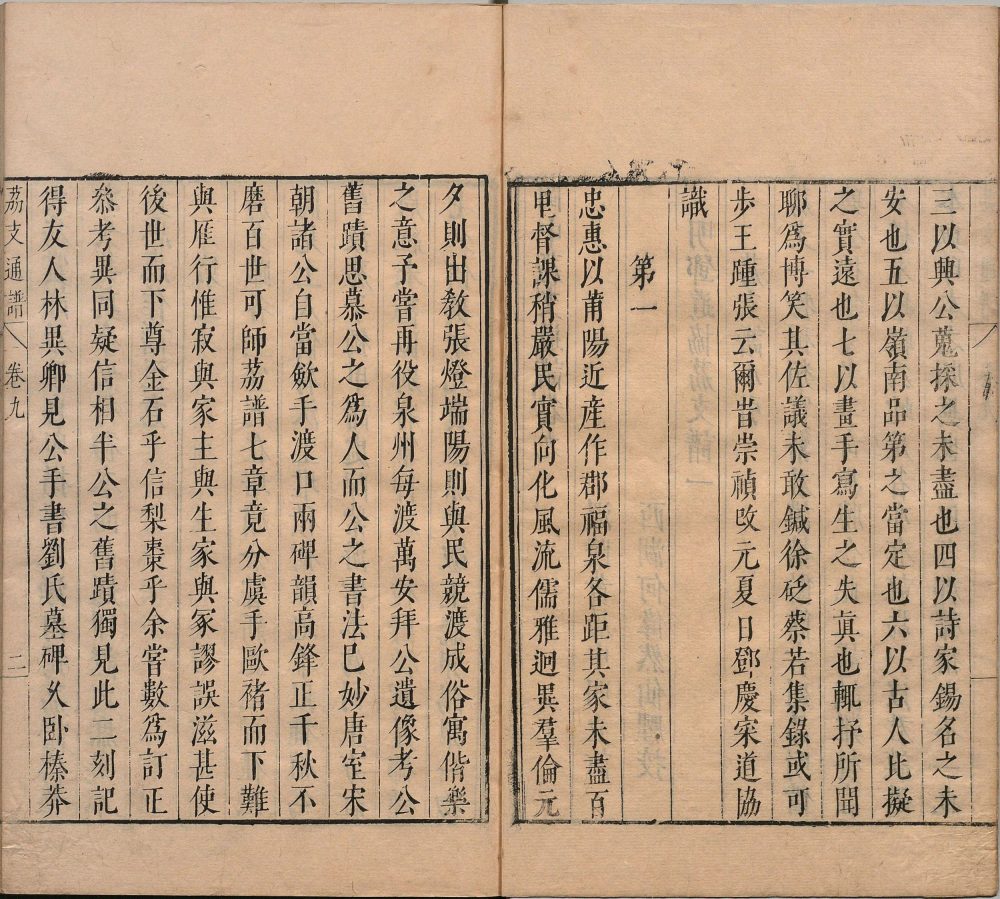 三以興公蒐採之未盡也四以詩家錫名之未
安也五以嶺南品第之當定也六以古人比擬
之實遠也七以畫手寫生之失眞也輒抒所聞
聊爲博笑其佐議未敢鍼徐砭蔡若集錄或可
步王踵張云爾旹崇禎改元夏日鄧慶寀道協
識
第一
忠惠以莆陽近産作郡福泉各距其家未盡百
里督課稍嚴民實向化風流儒雅迥異羣倫元
夕則出敎張燈端陽則與民競渡成俗寓偕樂
之意予嘗再役泉州每渡萬安拜公遺像考公
舊蹟思慕公之爲人而公之書法已妙唐室宋
朝諸公自當歛手渡口兩碑韻高鋒正千秋不
磨百世可師荔譜七章竟分虞手歐褚而下難
與雁行惟寂與家主與生家與冡謬誤滋甚使
後世而下尊金石乎信梨棗乎余嘗數爲訂正
叅考異同疑信相半公之舊蹟獨見此二刻記
得友人林異卿見公手書劉氏墓碑乆臥榛莽
荔支通譜
卷九
二